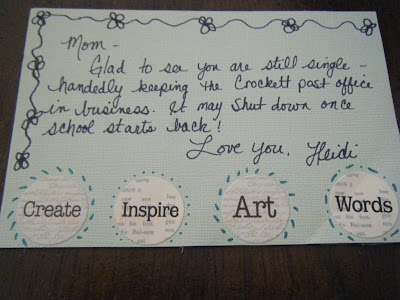 Mom -
Glad to see you are still single -
handedly keeping the Crockett post office
in business. It may shut down once
school starts back!
Love You, Heidi
Create Inspire Art Words